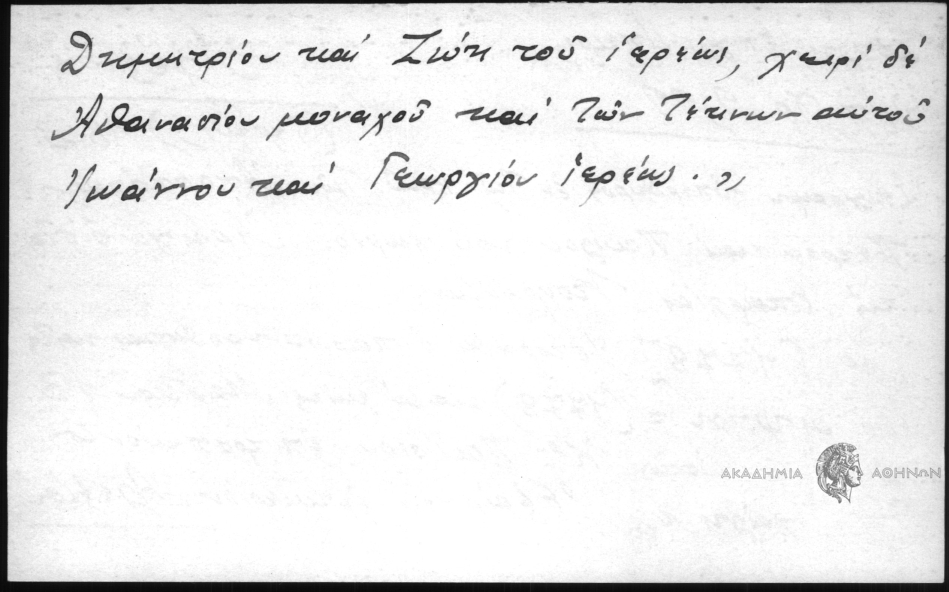 Δημητρίου καί Ζιώκ τοῦ ἱερέως, χειρί δέ
Ἀθανασίου μοναχοῦ καί τῶν τέκνων αὐτοῦ
Ἰωάννου καί Γεωργίου ἱερέως.»
ΑΚΑΔΗΜΙΑ ΑΘΗΝΩΝ